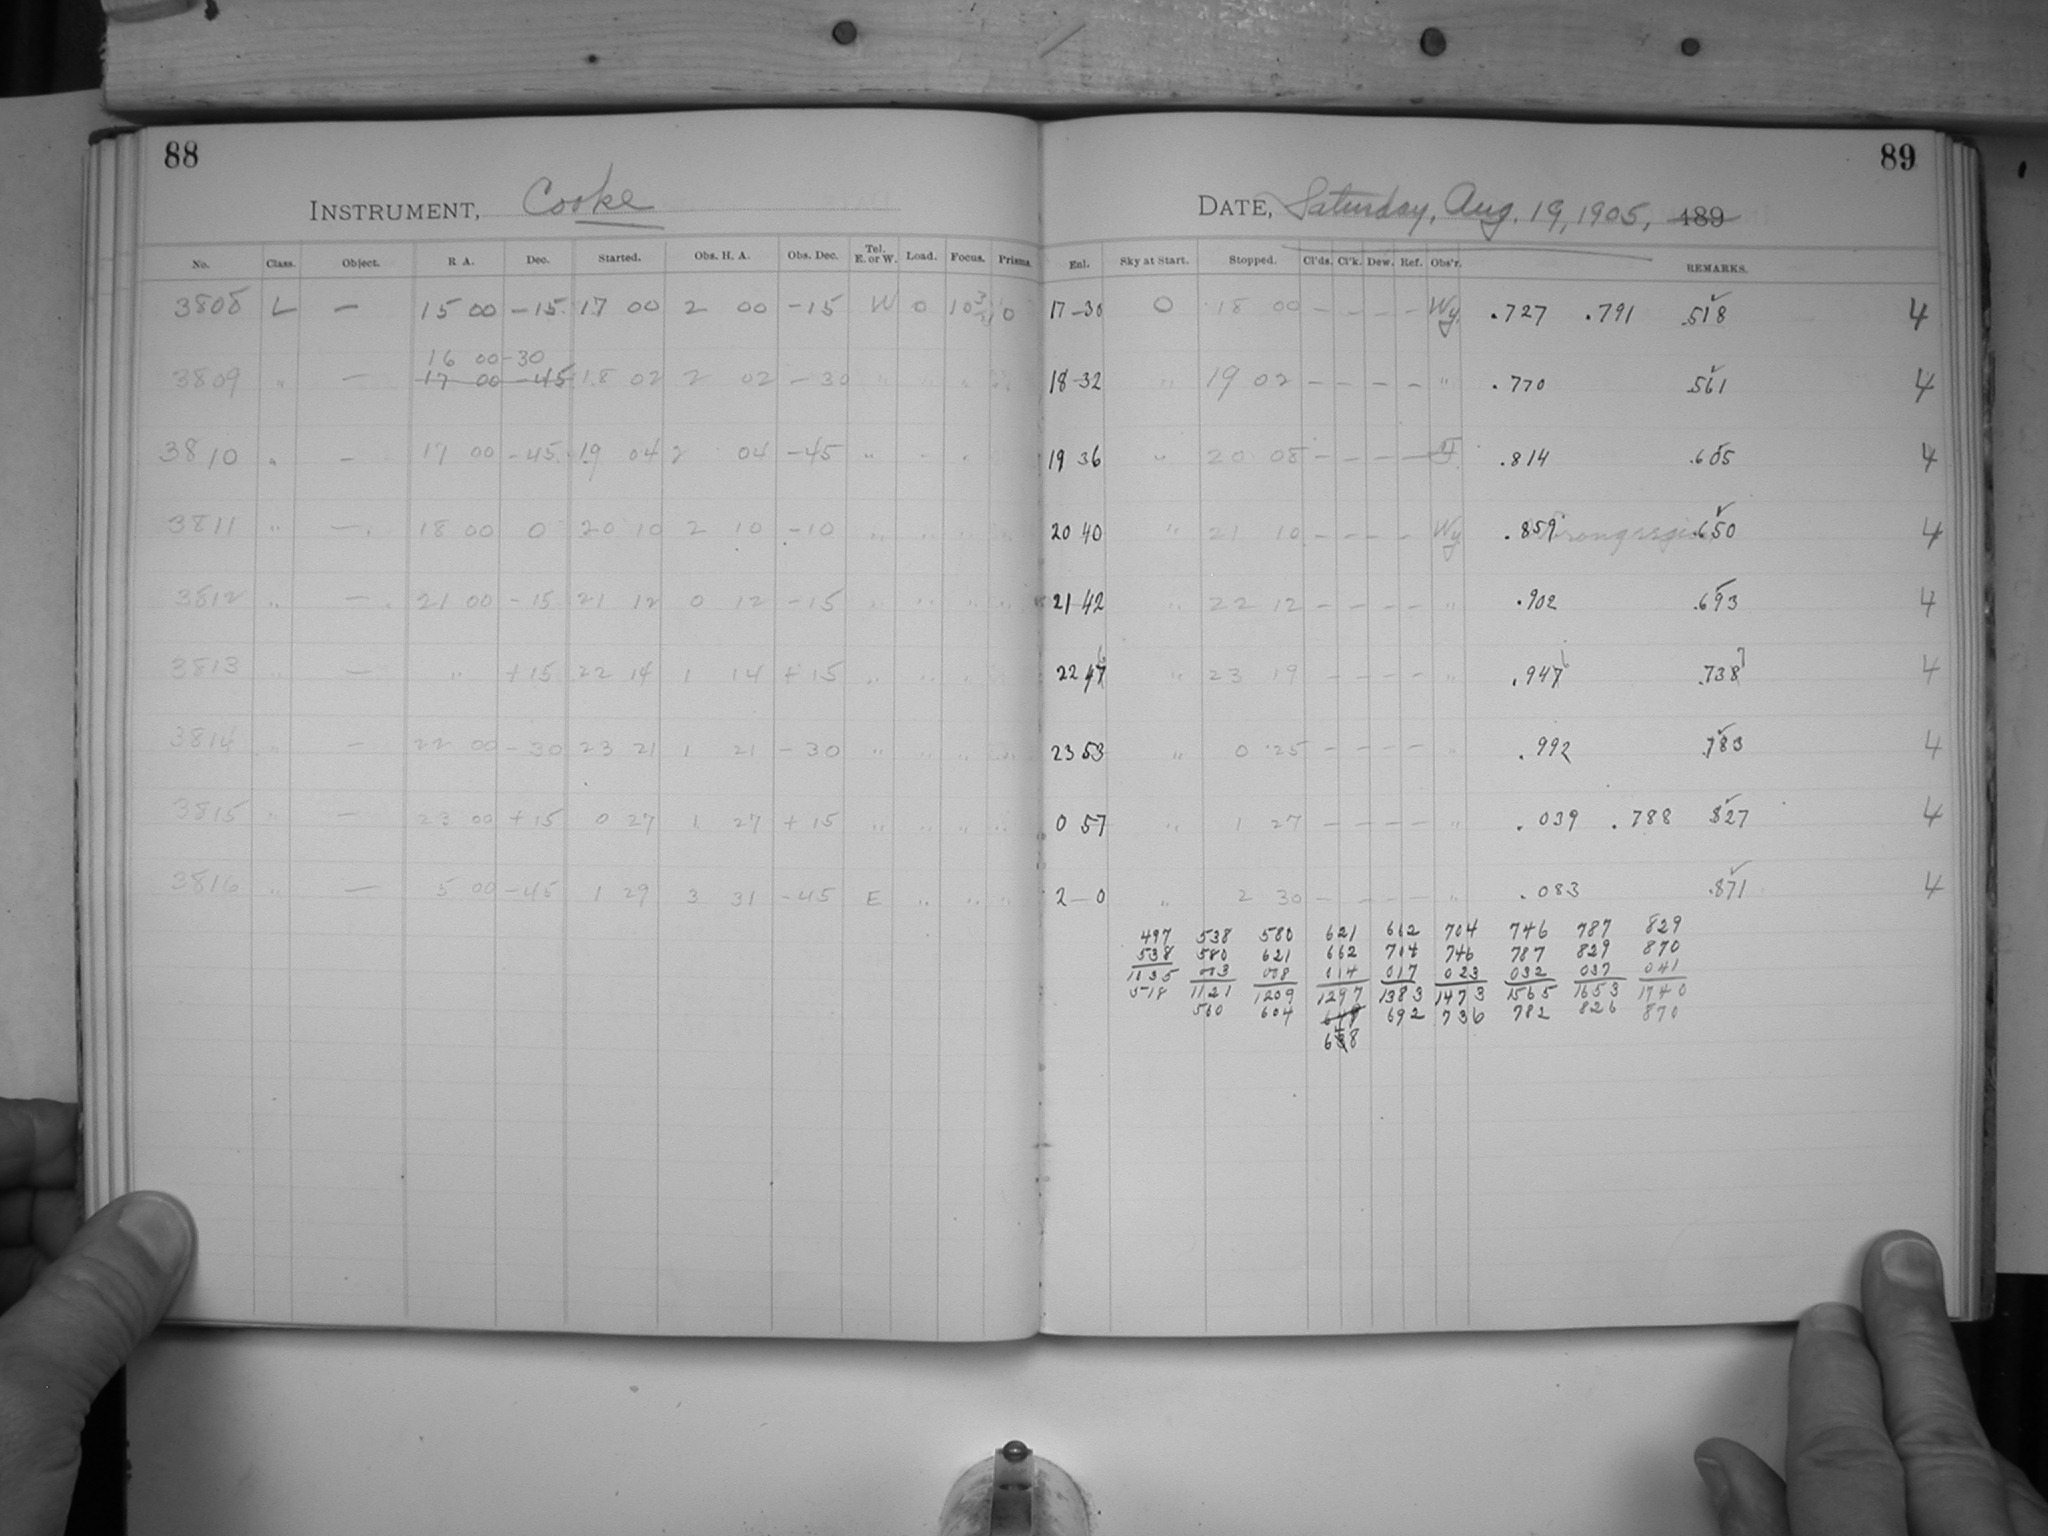 88
INSTRUMENT, Cooke
No. Class. Object. R A. Dec. Started. Obs. H. A. Obs. Dec. Tel. E. or W. Load. Focus. Prisms.
3808 L — 15 00 -15 17 00 2 00 -15 W 0 10 0
16 00 -30
3809 " — 17 00 -45 18 02 2 02 -30 " " " "
3810 " — 17 00 -45 19 04 2 04 -45 " " "
3811 " — 18 00 0 20 10 2 10 -10 " " " "
3812 " — 21 00 -15 21 12 0 12 -15 " " " "
3813 " — " +15 22 14 1 14 +15 " " " "
3814 " — 22 00 -30 23 21 1 21 -30 " " " "
3815 " — 23 00 +15 0 27 1 27 +15 " " " "
3816 " — 5 00 -45 1 29 3 31 -45 E " " "
89
DATE, Saturday, Aug. 19, 1905, 189
Enl. Sky at Start. Stopped. Cl'ds. Cl'k. Dew. Ref. Obs'r. REMARKS.
17-30 0 18 00 – – – – Wy. .727 .791 .518 4
18-32 " 19 02 – – – – " .770 .561 4
19 36 " 20 08 – – – – .814 .605 4
20 40 " 21 10 – – – – Wy .859 Wrong region .650 4
21 42 " 22 12 – – – – " .902 .693 4
22 47 6 " 23 19 – – – – " .947 6 .738 7 4
23 53 " 0 25 – – – – " .992 .783 4
0 57 " 1 27 – – – – " .039 .788 827 4
2-0 " 2 30 – – – – " .083 .871 4
497 538 580 621 662 704 746 787 829
538 580 621 662 704 746 787 829 870
1035 003 008 014 017 023 032 037 041
518 1121 1209 1297 1383 1473 1565 1653 1740
560 604 648 692 736 782 826 870